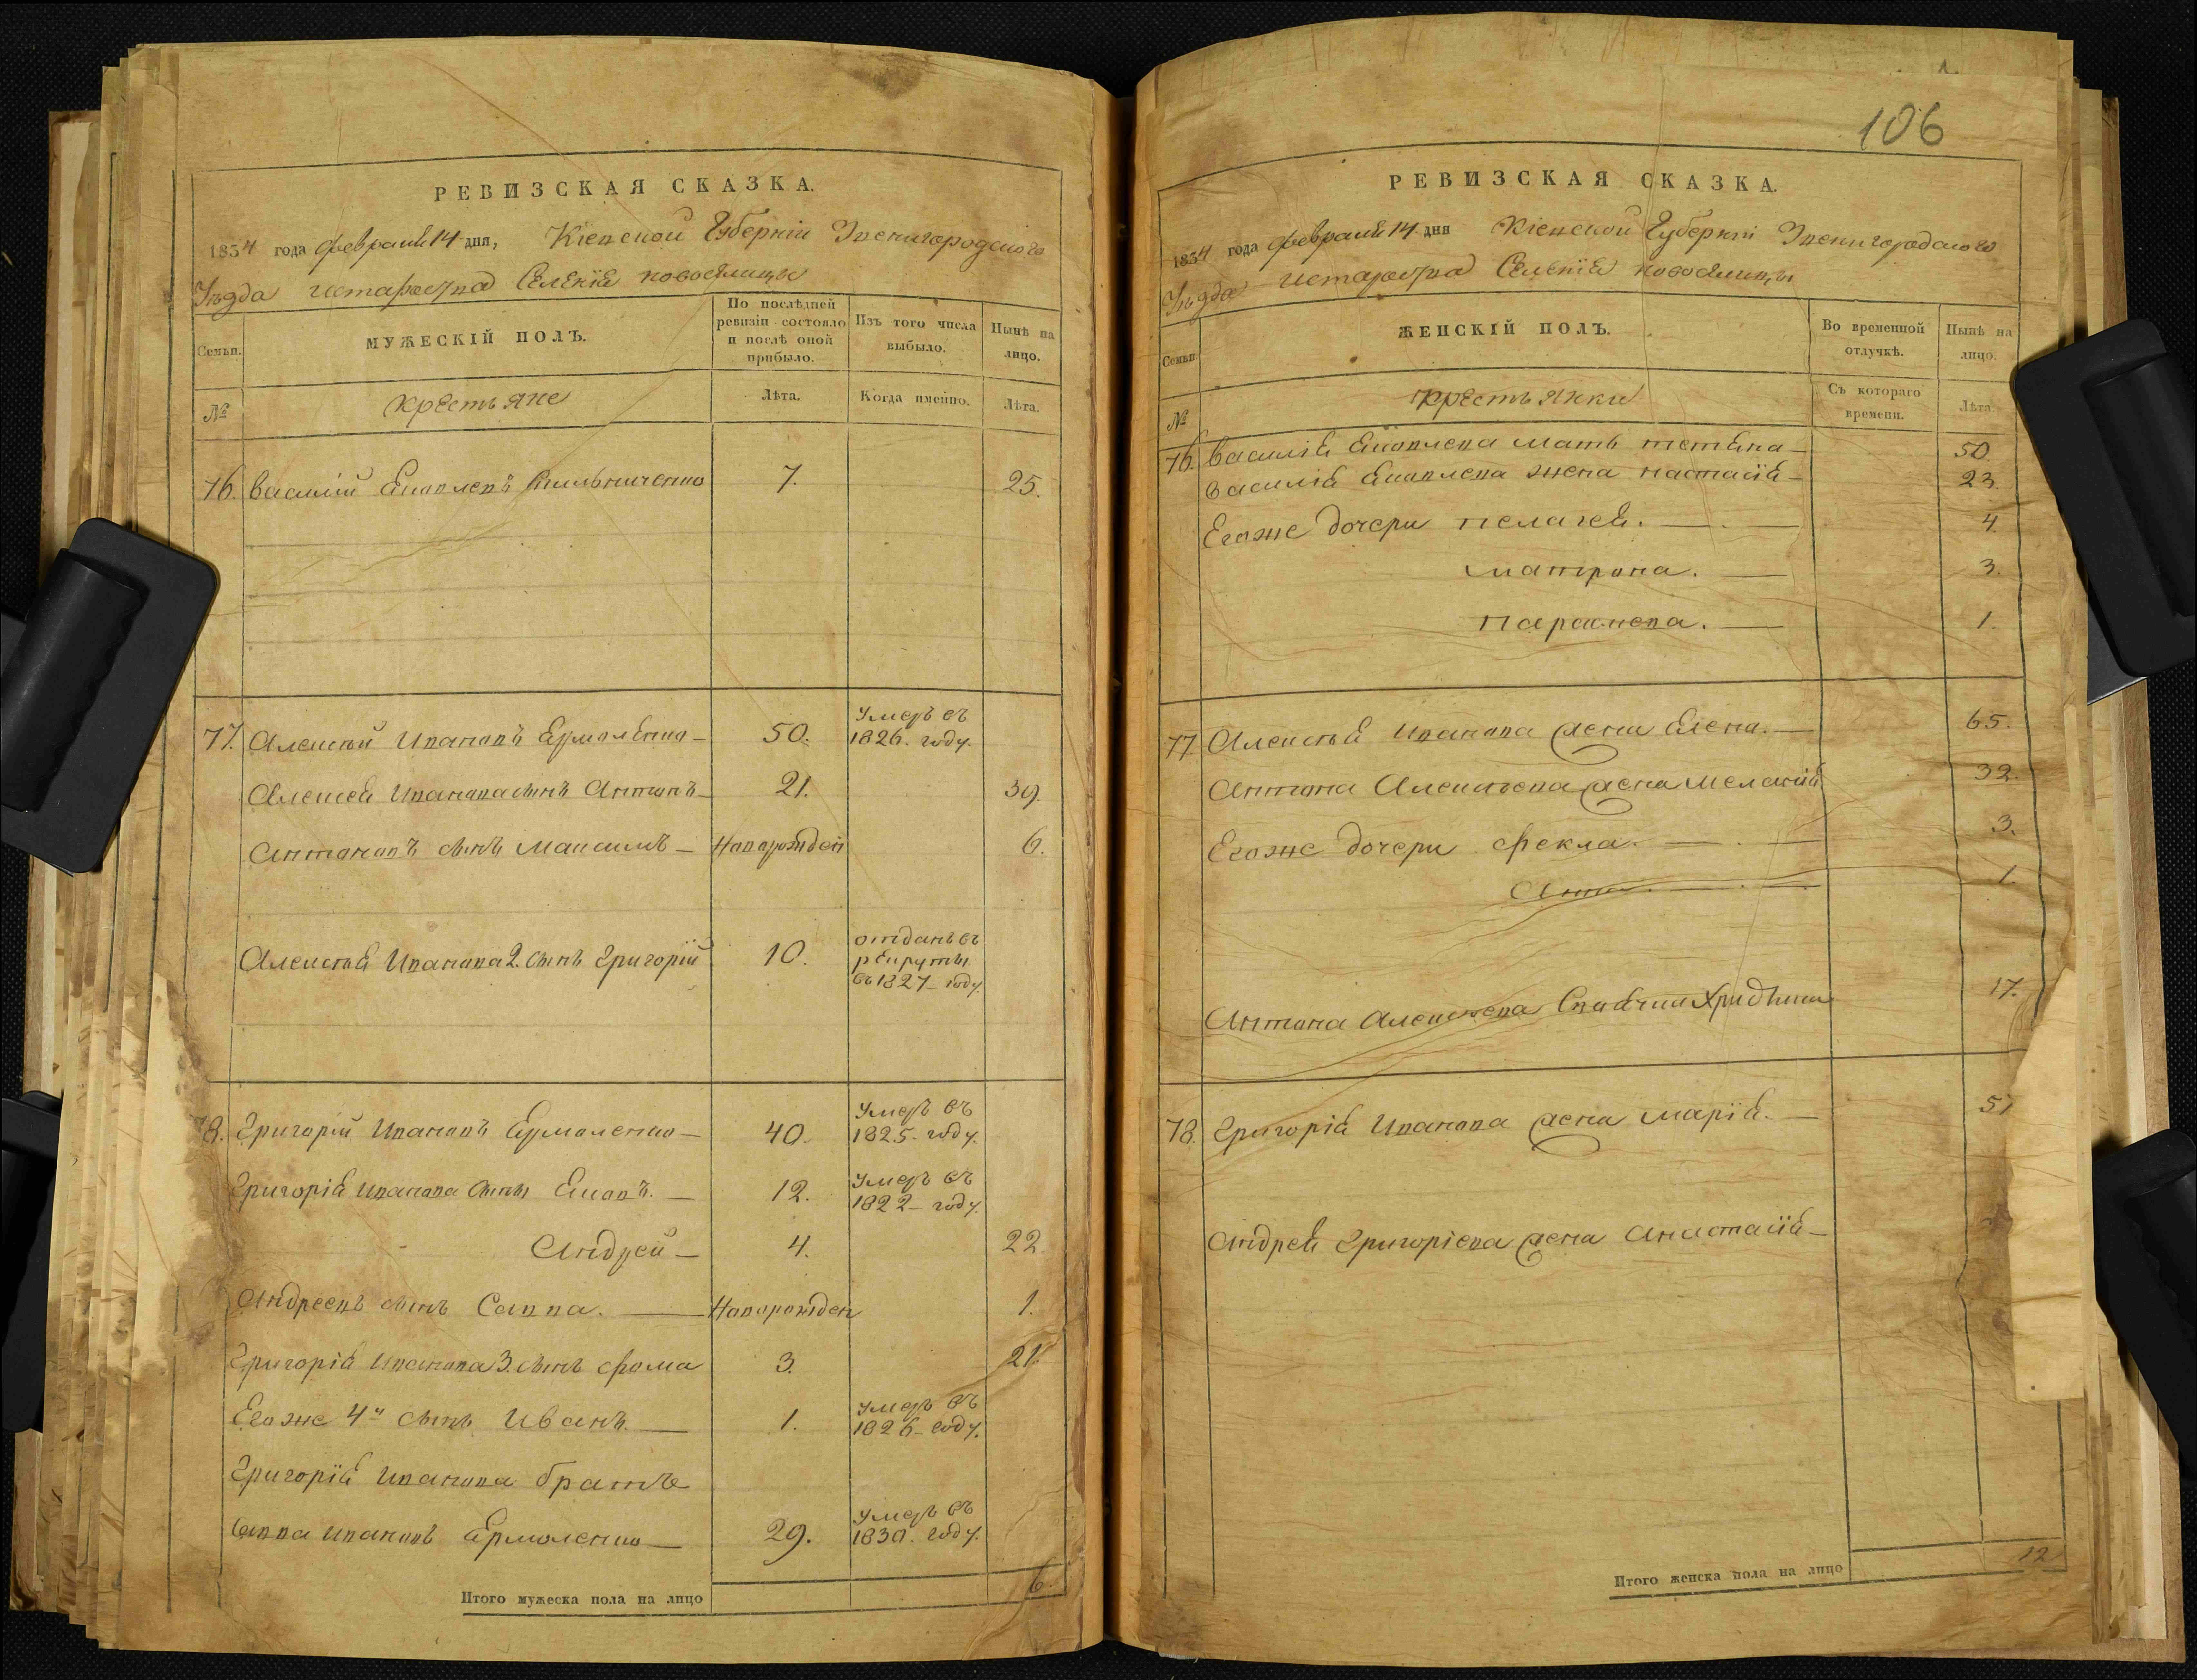 РЕВИЗСКАЯ СКАЗКА.
1834 года февраля 14 дня, Кіевской Губерніи Звенигородскаго
Уѣзда истароства Селенія новоселицы
Семьи. МУЖЕСКІЙ ПОЛЪ. По послѣдней ревизіи состояло и послѣ оной прибыло. Изъ того числа выбыло. Нынѣ на лицо.
№ крестьяне Лѣта. Когда именно. Лѣта.
76. Василій Яковлевъ 7. 25.
77. Алексѣй Ивановъ Ермоленко 50. умеръ въ 1826. году.
Алексея Иванова сынъ Антонъ 21. 39.
Антоновъ сынъ Максимъ Новорожден 6.
Алексѣя Иванова 2. сынъ Григорій 10. отданъ въ рекруты въ 1827 году.
78. Григорій Ивановъ Ермоленко 40. умеръ въ 1825. году.
Григорія Иванова сыны Яковъ. 12. умеръ въ 1822 году.
Андрей 4. 22
Андреевъ сынъ Савва. Новорожден 1.
Григорія Иванова 3. сынъ Фома 3. 21.
Его же 4й сынъ Иванъ. 1. умеръ въ 1826 году.
Григорія Иванова братъ
Савва Ивановъ Ермоленко 29. умеръ въ 1830. году.
Итого мужеска пола на лицо 6.
106
РЕВИЗСКАЯ СКАЗКА.
1834 года февраля 14 дня Кіевской Губерніи Звенигородскаго
Уѣзда истароства Селенія новоселицы
Семьи. ЖЕНСКІЙ ПОЛЪ. Во временной отлучкѣ. Нынѣ на лицо.
№ крестьянки Съ котораго времени. Лѣта.
76. Василія Яковлева мать тетяна 50.
Василія Яковлева жена настасія 23.
Егоже дочери пелагея. 4.
матрона. 3.
параскева. 1.
77 Алексѣя Иванова жена Елена. 65.
Антона Алексѣева жена Меланія 32.
Егоже дочери Фекла. 3.
Анна. 1.
Антона Алексѣева 17.
78. Григорія Иванова жена Марія. 51
Андрея Григоріева жена Анастасія
Итого женска пола на лицо 12